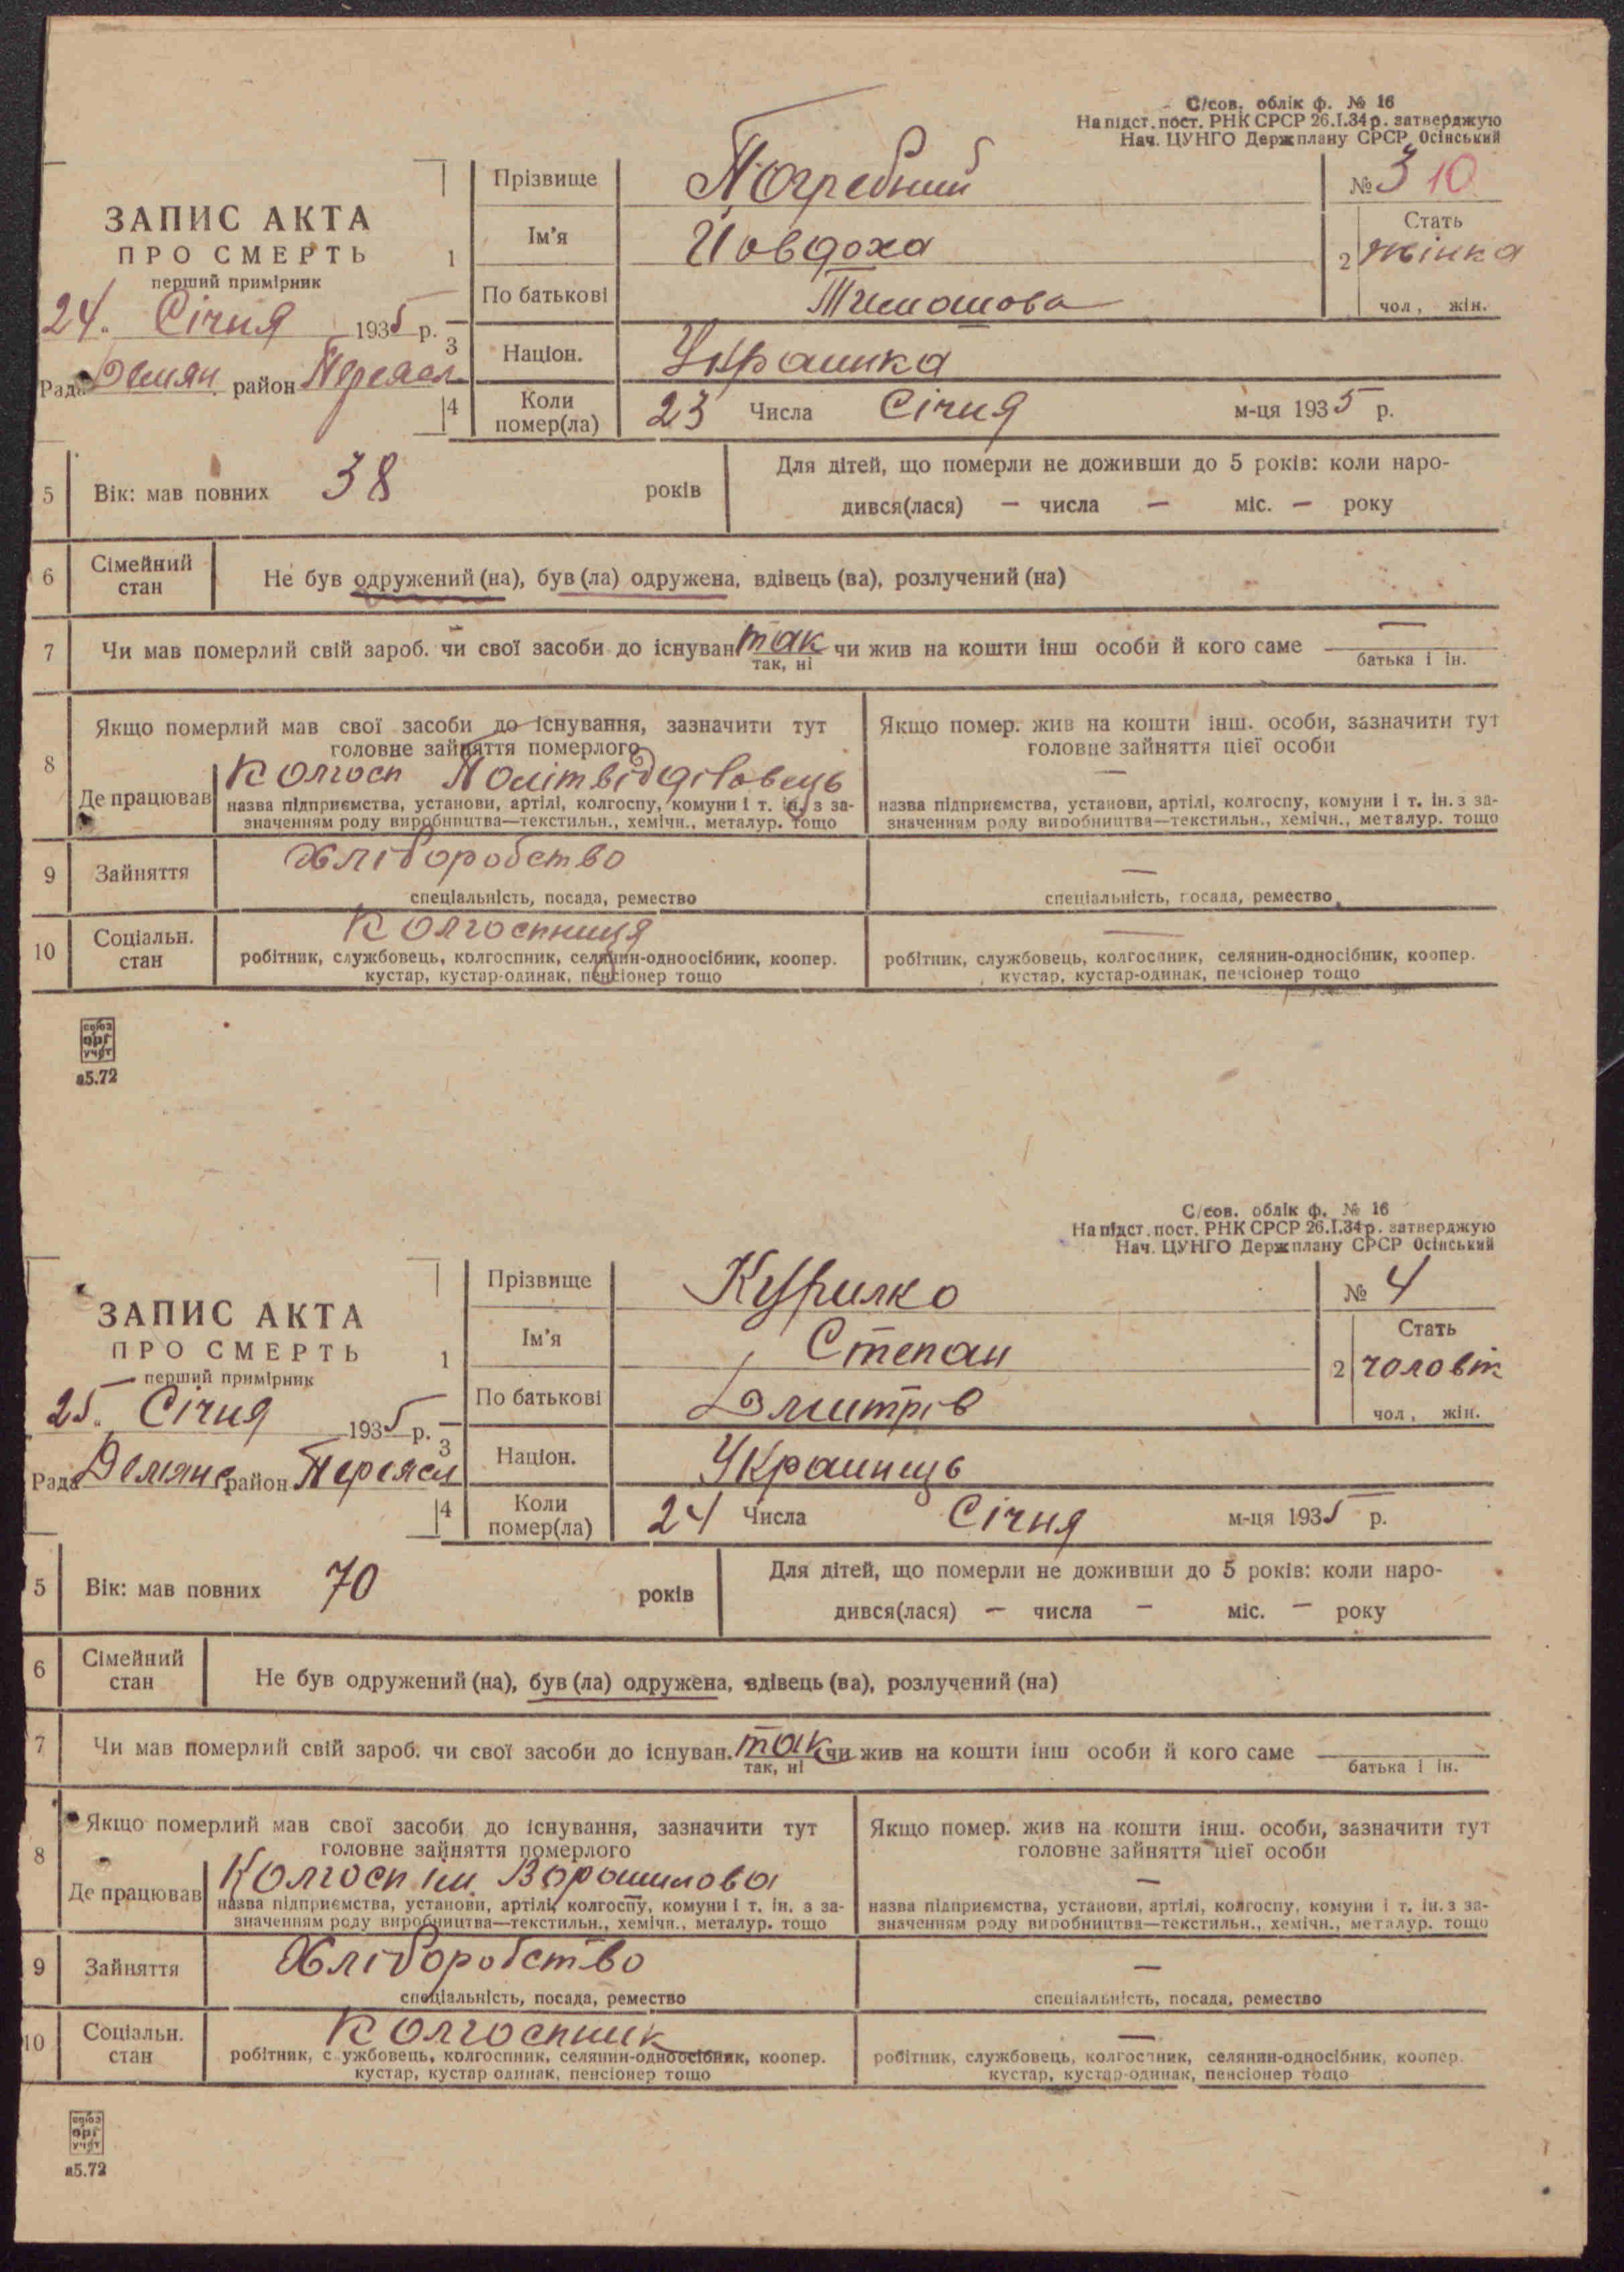 С/сов. облік ф. № 16
На підст. пост. РНК СРСР 26.I.34 р. затверджую
Нач. ЦУНГО Держплану СРСР Осінський
Прізвище Погребний № 3 10
ЗАПИС АКТА
ПРО СМЕРТЬ
перший примірник
1 Ім'я Йовдоха
2 Стать жінка
чол, жін.
По батькові Тимошова
24. Січня 1935 р.
3 Націон. Украинка
Рада Демян. район Переясл
4 Коли помер(ла) 23 Числа Січня м-ця 1935 р.
5 Вік: мав повних 38 років
Для дітей, що померли не доживши до 5 років: коли наро-
дився(лася) — числа — міс. — року
6 Сімейний стан Не був одружений (на), був (ла) одружена, вдівець (ва), розлучений (на)
7 Чи мав померлий свій зароб. чи свої засоби до існуван так чи жив на кошти інш особи й кого саме —
так, ні батька і ін.
8 Якщо померлий мав свої засоби до існування, зазначити тут
головне зайняття померлого
Якщо помер. жив на кошти інш. особи, зазначити тут
головне зайняття цієї особи
Де працював Колгосп Політвідділовець —
назва підприємства, установи, артілі, колгоспу, комуни і т. ін. з за-
значенням роду виробництва—текстильн., хемічн., металур. тощо
назва підприємства, установи, артілі, колгоспу, комуни і т. ін. з за-
значенням роду виробництва—текстильн., хемічн., металур. тощо
9 Зайняття Хліборобство —
спеціальність, посада, ремество спеціальність, посада, ремество
10 Соціальн. стан Колгоспниця —
робітник, службовець, колгоспник, селянин-одноосібник, коопер.
кустар, кустар-одинак, пенсіонер тощо
робітник, службовець, колгоспник, селянин-односібник, коопер.
кустар, кустар-одинак, пенсіонер тощо
союз
орг
учет
а5.72
С/сов. облік ф. № 16
На підст. пост. РНК СРСР 26.I.34 р. затверджую
Нач. ЦУНГО Держплану СРСР Осінський
Прізвище Курилко № 4
ЗАПИС АКТА
ПРО СМЕРТЬ
перший примірник
1 Ім'я Степан
2 Стать чоловік
чол, жін.
По батькові Дмитрів
25. Січня 1935 р.
3 Націон. Украинець
Рада Демянс район Переясл
4 Коли помер(ла) 24 Числа Січня м-ця 1935 р.
5 Вік: мав повних 70 років
Для дітей, що померли не доживши до 5 років: коли наро-
дився(лася) — числа — міс. — року
6 Сімейний стан Не був одружений (на), був (ла) одружена, вдівець (ва), розлучений (на)
7 Чи мав померлий свій зароб. чи свої засоби до існуван. так чи жив на кошти інш особи й кого саме —
так, ні батька і ін.
8 Якщо померлий мав свої засоби до існування, зазначити тут
головне зайняття померлого
Якщо помер. жив на кошти інш. особи, зазначити тут
головне зайняття цієї особи
Де працював Колгосп им Ворошилова —
назва підприємства, установи, артілі, колгоспу, комуни і т. ін. з за-
значенням роду виробництва—текстильн., хемічн., металур. тощо
назва підприємства, установи, артілі, колгоспу, комуни і т. ін. з за-
значенням роду виробництва—текстильн., хемічн., металур. тощо
9 Зайняття Хліборобство —
спеціальність, посада, ремество спеціальність, посада, ремество
10 Соціальн. стан Колгоспник —
робітник, службовець, колгоспник, селянин-одноосібник, коопер.
кустар, кустар одинак, пенсіонер тощо
робітник, службовець, колгоспник, селянин-односібник, коопер.
кустар, кустар-одинак, пенсіонер тощо
союз
орг
учет
а5.72